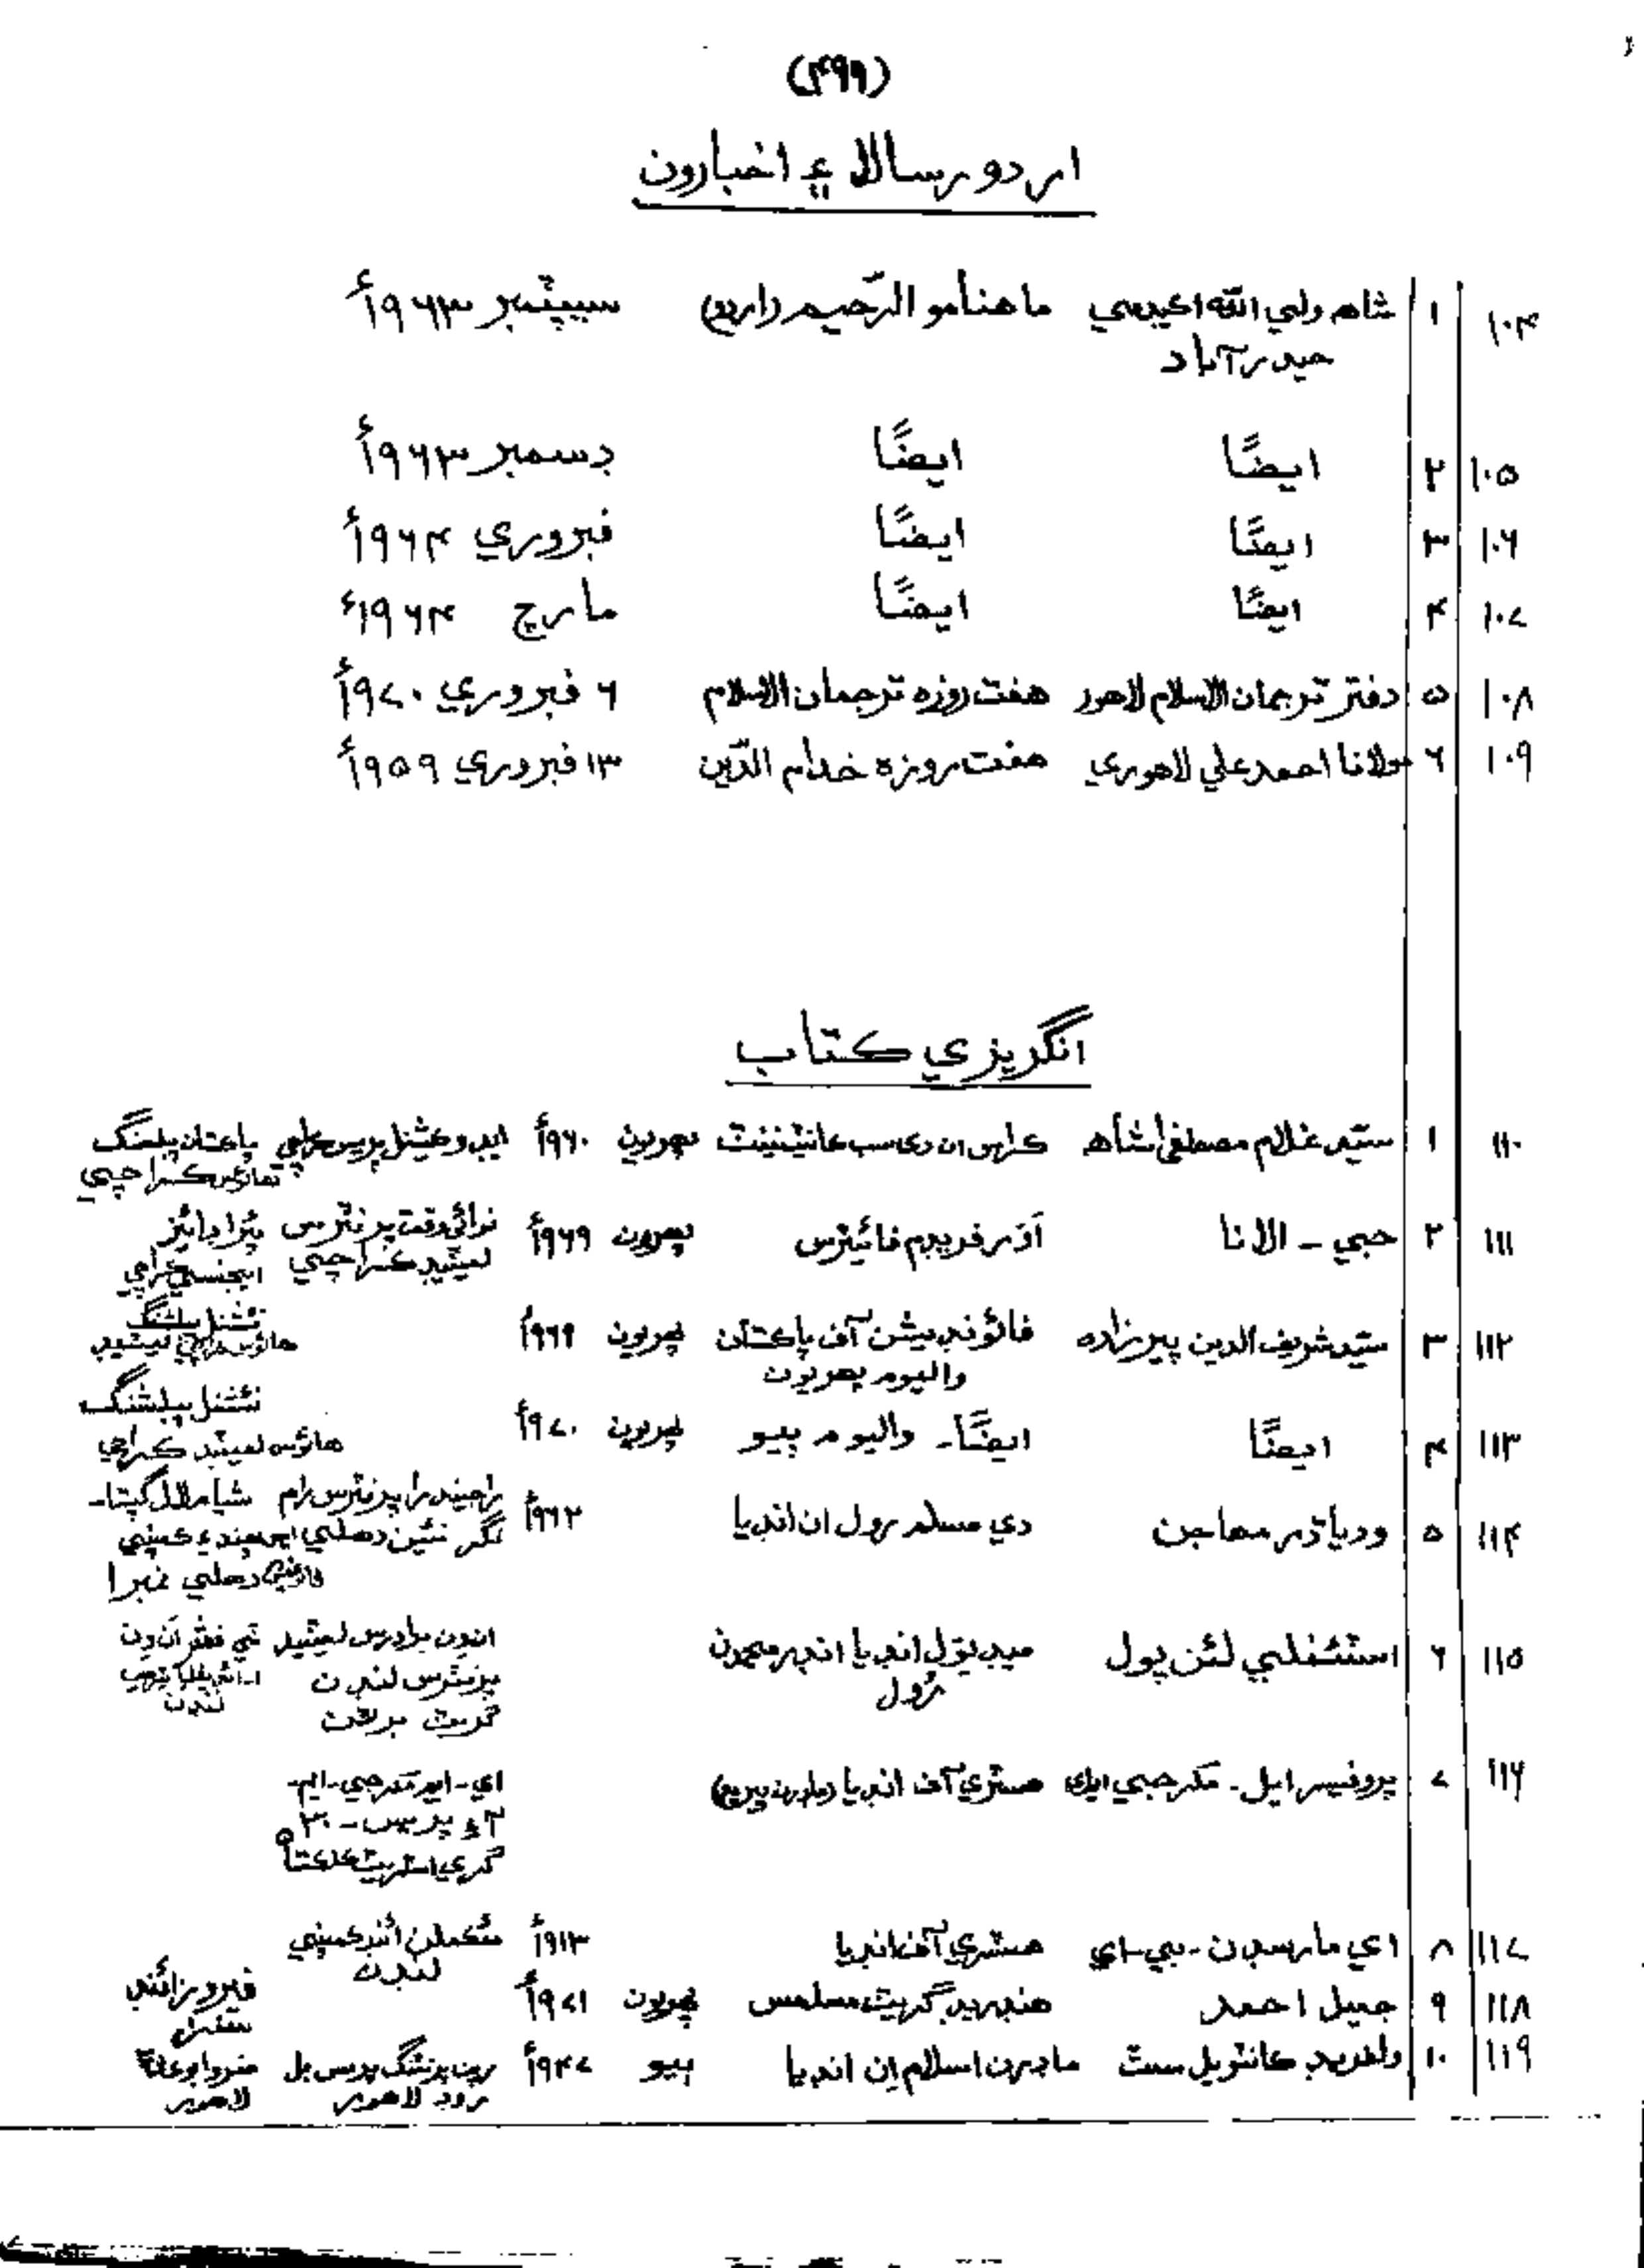 (۴۹۹)
اردو رسالا ۽ اخبارون
۱۰۴ ۱ شاھ ولي الله اڪيڊمي ماهنامو الرّحيم (اردو) سيپٽمبر ۱۹۶۳ع
حيدرآباد
۱۰۵ ۲ ايضًا ايضًا ڊسمبر ۱۹۶۳ع
۱۰۶ ۳ ايضًا ايضًا فبروري ۱۹۶۴ع
۱۰۷ ۴ ايضًا ايضًا مارچ ۱۹۶۴ع
۱۰۸ ۵ دفتر ترجمان الاسلام لاهور هفت روزه ترجمان الاسلام ۶ فبروري ۱۹۷۰ع
۱۰۹ ۶ مولانا احمد علي لاهوري هفت روزه خدام الدّين ۱۳ فبروري ۱۹۵۹ع
انگريزي ڪتاب
۱۱۰ ۱ سيّد غلام مصطفيٰ شاھ ان دي سب ڪانٽيننٽ پهريون ۱۹۶۰ع ايڊوڪيشنل پريس ڪراچي
ڪراچي
۱۱۱ ۲ جي - الانا آور فريڊم فائيٽرس پهريون ۱۹۶۹ع نوائي وقت پرنٽرس پيراڊائيز
لميٽيڊ ڪراچي ايجنسي ڪراچي
۱۱۲ ۳ سيّد شريف الدين پيرزاده فائونڊيشن آف پاڪستان پهريون ۱۹۶۹ع نئشنل پبلشنگ
واليوم پهريون هائوس ڪراچي لميٽيڊ
۱۱۳ ۴ ايضًا ايضًا - واليوم ٻيو پهريون ۱۹۷۰ع نئشنل پبلشنگ
هائوس لميٽيڊ ڪراچي
۱۱۴ ۵ وديا ڌر مهاجن دي مسلم رول ان انڊيا ۱۹۶۲ع راجيندرا پرنٽرس رام شيام لال گپتا -
نگر نئين دهلي ايس چند ۽ ڪمپني
دهلي نمبر ۱
۱۱۵ ۶ اسٽئنلي لئن پول ميڊيول انڊيا انڊر محمڊن
رُول
پرنٽرس لنڊن
گريٽ برٽن
لنڊن
۱۱۶ ۷ پروفيسر ايل - مکرجي ايم اي هسٽري آف انڊيا (ماڊرن پيريڊ) اي - ايم مکرجي - ايم -
آءِ پريس - ۳۰
گري اسٽريٽ ڪلڪتا
۱۱۷ ۸ اي مارسڊن - بي - اي هسٽري آف انڊيا ۱۹۱۳ع مئڪملن ائنڊ ڪمپني
لنڊن
۱۱۸ ۹ جميل احمد هنڊريڊ گريٽ مسلمس پهريون ۱۹۷۱ع فيروز ائنڊ
سنز
۱۱۹ ۱۰ ولفريڊ ڪانٽويل سمٿ ماڊرن اسلام اِن انڊيا ٻيو ۱۹۴۷ع رپن پرنٽنگ پريس بل
روڊ لاهور لاهور